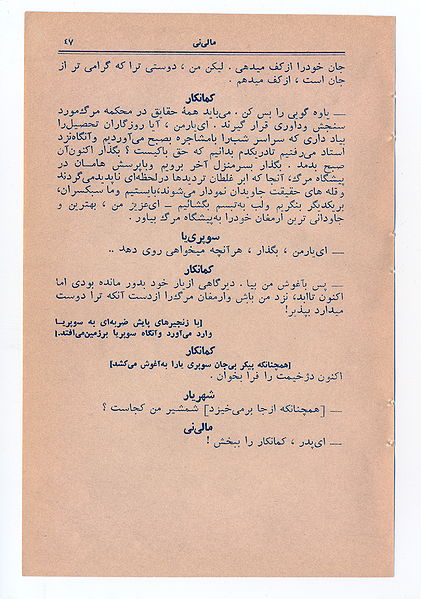 مالی‌نی ۴۷
جان خودرا ازکف میدهی . لیکن من ، دوستی ترا که گرامی تر از
جان است ، ازکف میدهم .
کمانکار
— یاوه گویی را بس کن . می‌باید همهٔ حقایق در محکمه مرگ‌مورد
سنجش وداوری قرار گیرند . ای‌یارمن ، آیا روزگاران تحصیل‌را
بیاد داری که سراسر شب‌را بامشاجره بصبح می‌آوردیم وآنگاه‌نزد
استاد می‌رفتیم تادریکدم بدانیم که حق باکیست ؟ بگذار اکنون‌آن
صبح بدمد . بگذار بسرمنزل آخر برویم وباپرسش هامان در
پیشگاه مرگ، آنجا که ابر غلطان تردیدها درلحظه‌ای ناپدیدمی‌گردند
وقله های حقیقت جاویدان نمودار می‌شوند،بایستیم وما سبکسران،
بریکدیگر بنگریم ولب به‌تبسم بگشائیم — ای‌عزیز من ، بهترین و
جاودانی ترین ارمغان خودرا به‌پیشگاه مرگ بیاور .
سوپری‌یا
— ای‌یارمن ، بگذار ، هرآنچه میخواهی روی دهد ..
کمانکار
— پس بآغوش من بیا . دیرگاهی ازیار خود بدور مانده بودی اما
اکنون تاابد، نزد من باش وارمغان مرگ‌را ازدست آنکه ترا دوست
میدارد بپذیر!
[با زنجیرهای پایش ضربه‌ای به سوپریا
وارد می‌آورد وآنگاه سوپریا برزمین‌می‌افتد.]
کمانکار
[همچنانکه پیکر بی‌جان سوپری یارا به‌آغوش می‌کشد]
اکنون دژخیمت را فرا بخوان .
شهریار
— [همچنانکه ازجا برمی‌خیزد] شمشیر من کجاست ؟
مالی‌نی
— ای‌پدر ، کمانکار را ببخش !